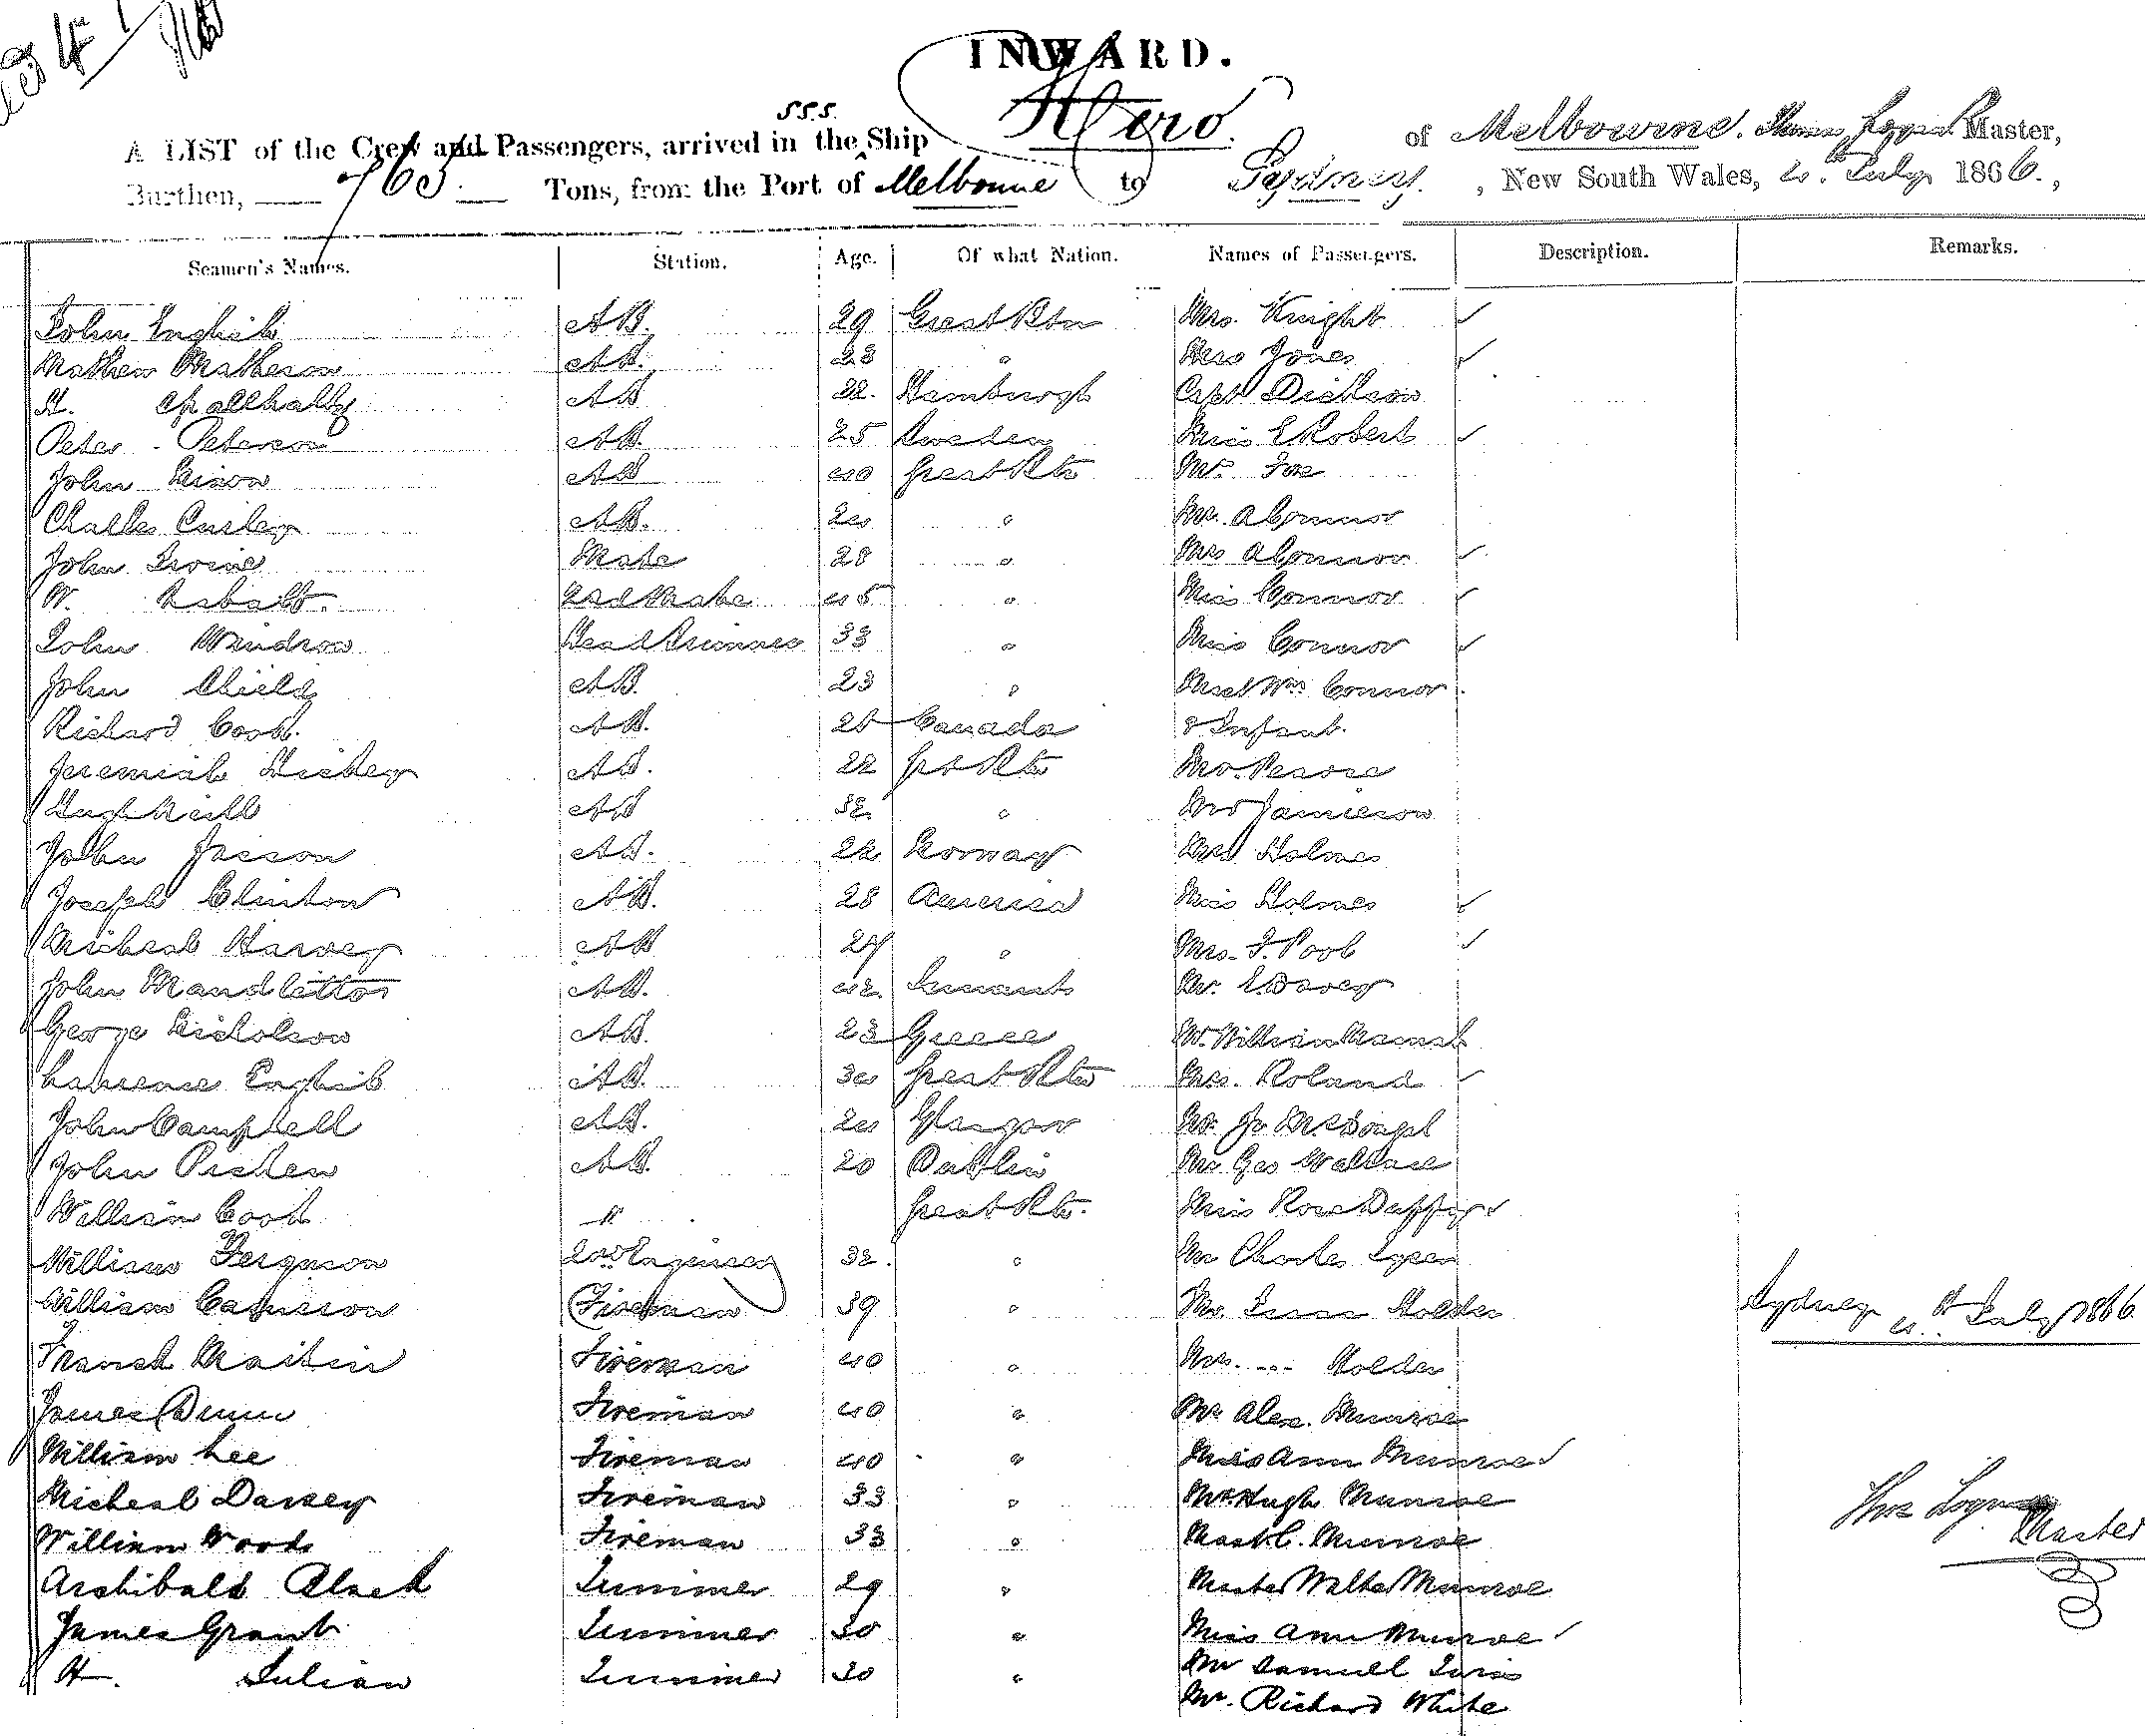 INWARD.
A LIST of the Crew and Passengers, arrived in the S.S.S. Ship Hero of Melbourne. Thomas Logan Master,
Burthen, 765 Tons, from the Port of Melbourne to Sydney, New South Wales, 4th July 1866.,
Seamen's Names. Station. Age. Of what Nation. Names of Passengers. Description. Remarks.
John English AB. 29 Great Btn Mrs. Knight ✓
Mathew Matheson AB. 23 " Mrs Jones ✓
H. AB 22. Hamburgh Capt Dickson
Peter Peterson AB. 25 Sweden Miss E Robert ✓
John AB 40 Great Btn Mr. Fox
Charles Curley AB. 24 " Mr. A Connor
John Irvine Mate 28 " Mrs A Connor ✓
W. 2nd Mate 45 " Miss Connor ✓
John Windrow 33 " Miss Connor ✓
John Shield AB. 23 " Wm Connor.
Richard Cook. AB. 25 Canada & Infant.
Jeremiah Hickey AB. 22 Grt Btn Mr. Pearse
Hugh Neill AB 32 " Mr Jamieson
John AB. 22 Norway Mrs Holmes
Joseph Clinton AB. 28 America Miss Holmes ✓
Micheal Harvey AB 24 " Mrs. J. Pook ✓
John AB. 42. Mr. E. Davey
George Nicholson AB. 23 Greece Mr. William
Lawrence English AB. 34 Great Btn Mrs. Roland ✓
John Campbell AB. 24 Glasgow Mr. Jn McDougal
John AB. 20 Dublin Mr Geo Wallace
William Cook " Great Btn. Miss Rose Duffy ✓
William Ferguson 2nd Engineer 32. " Mr Charles
William Cameron Fireman 39 " Mr. Isaac Holden
Sydney 4th July 1866
Martin Fireman 40 " Mrs. Holden
James Dunn Fireman 40 " Mr Alex. Munroe
William Lee Fireman 40 " Miss Ann Munroe ✓
Micheal Darcey Fireman 33 " Mr. Hugh Munroe
Thos Logan
Master
William Woods Fireman 33 " Mast C. Munroe
Archibald Black Trimmer 29 " Master Walter Munroe
James Grant Trimmer 30 " Miss Ann Munroe ✓
H. Julian Trimmer 30 " Mr Samuel
Mr. Richard White